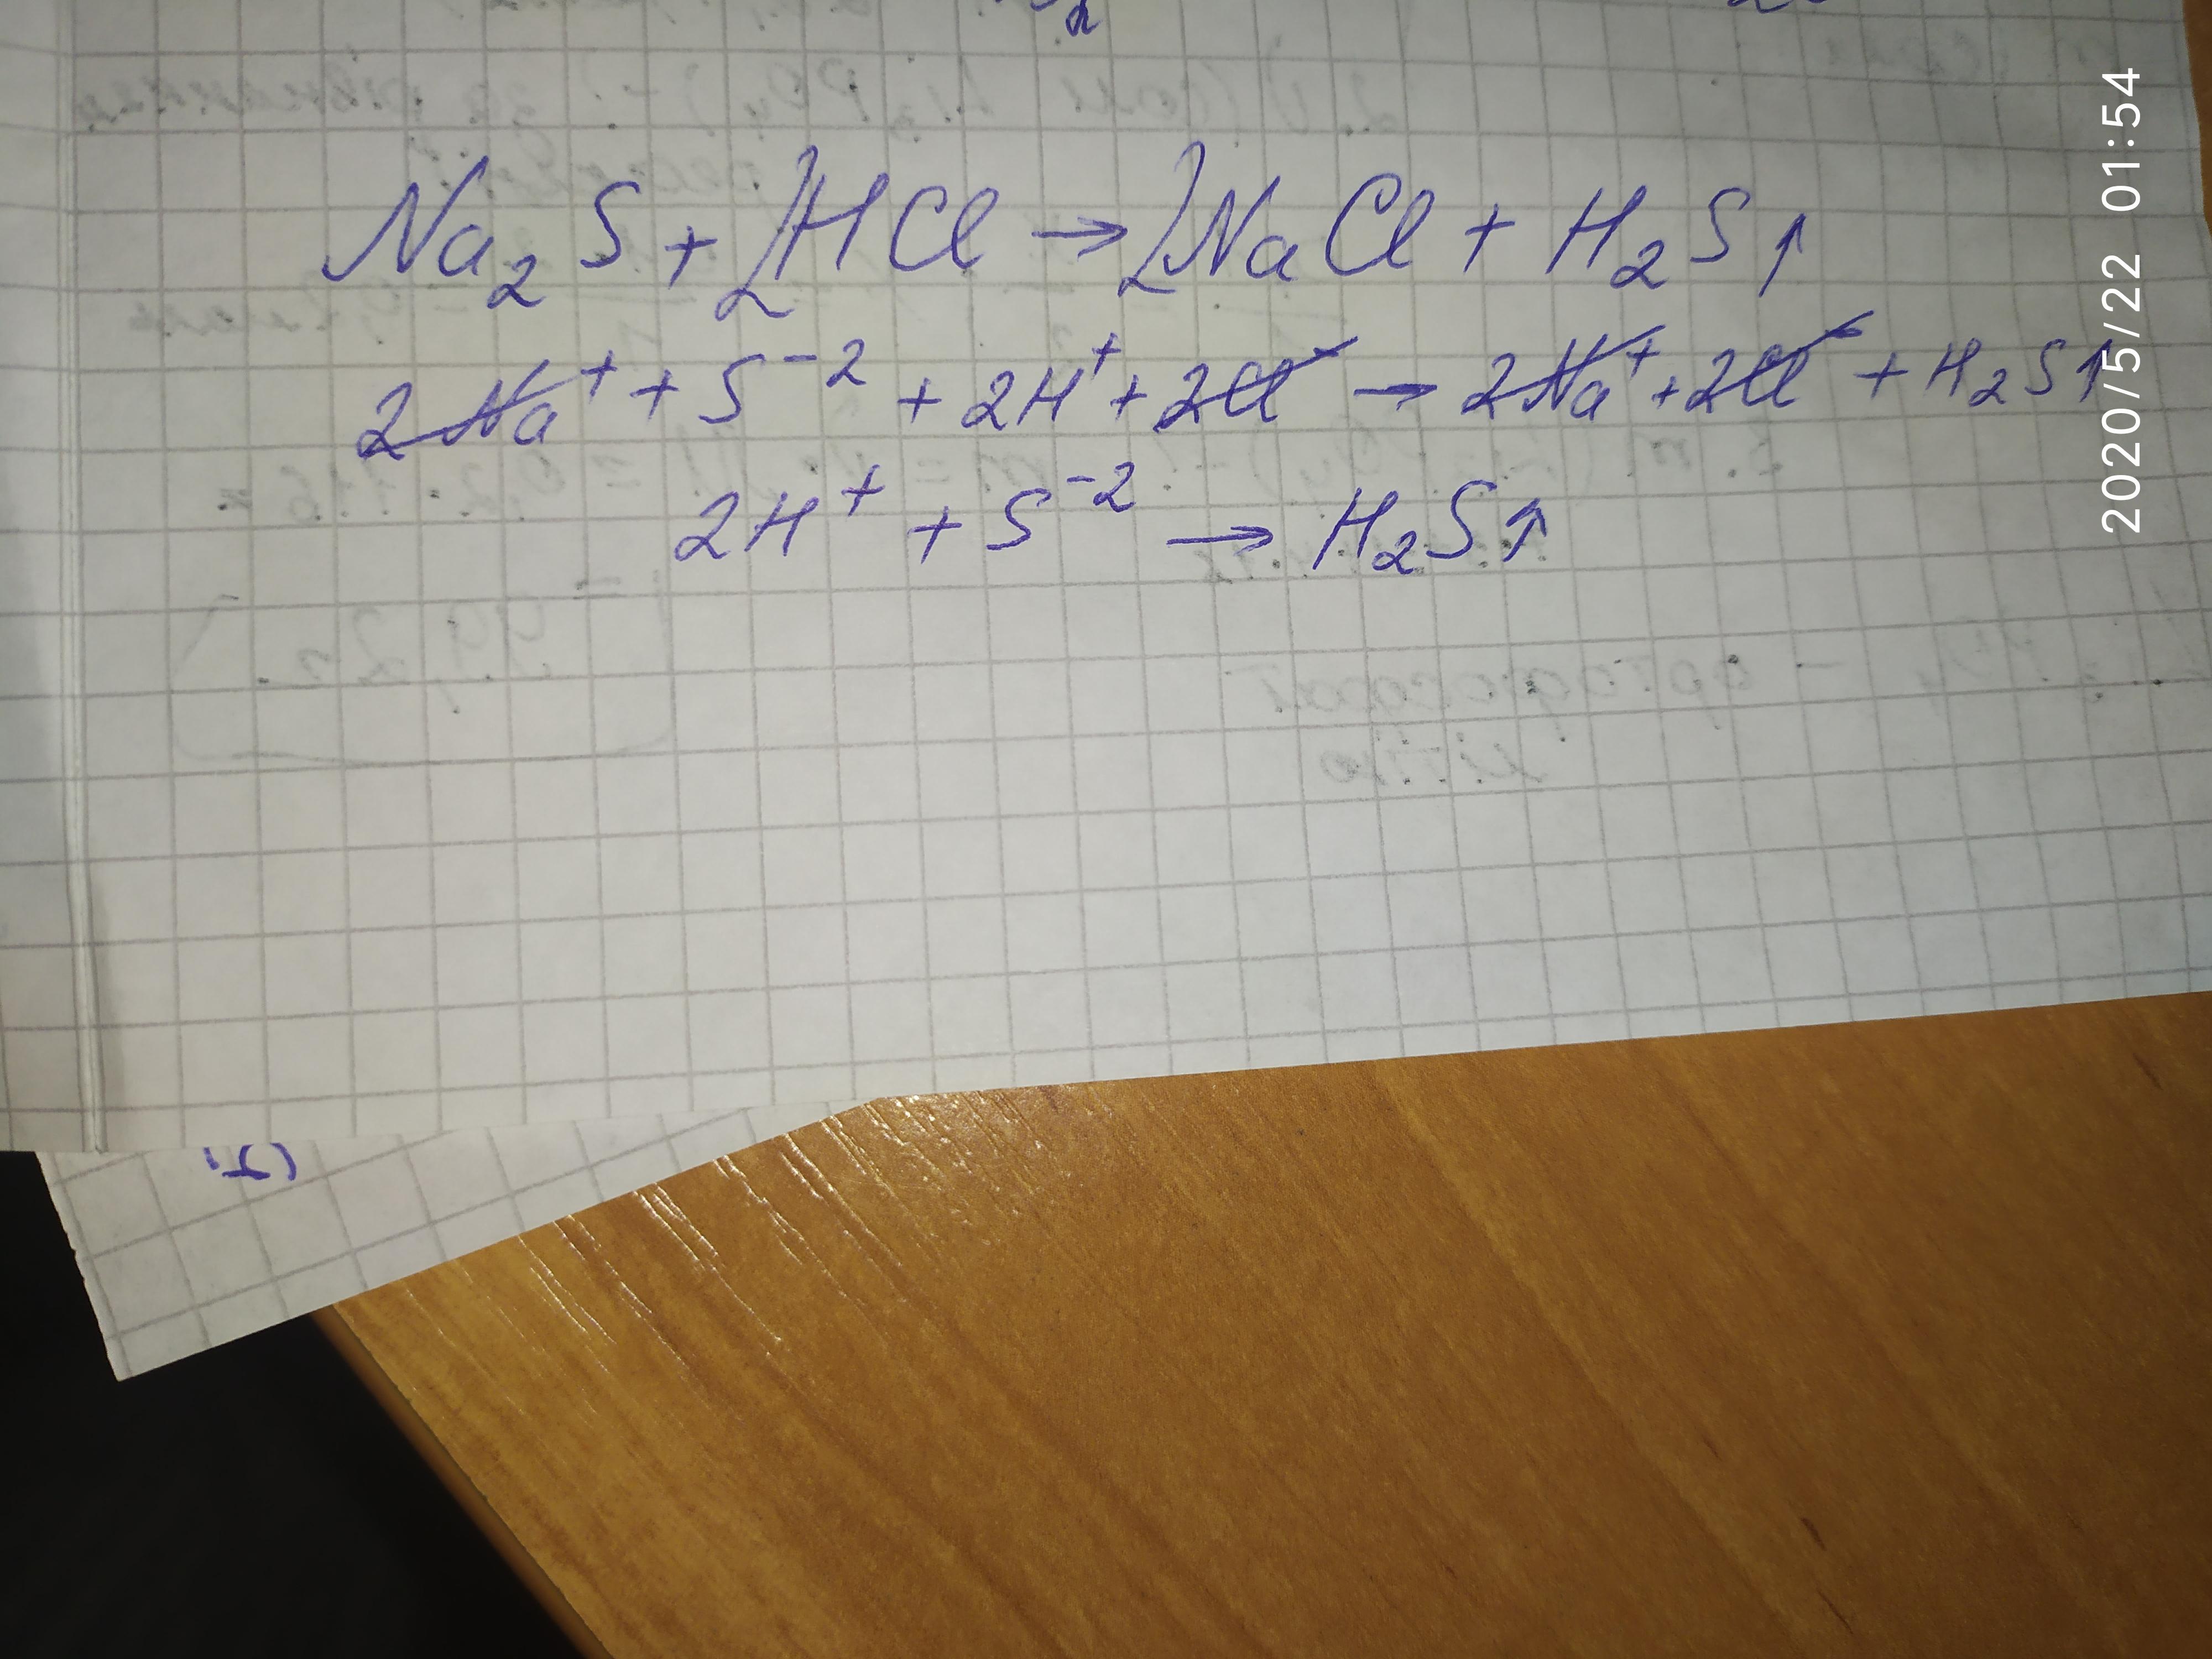 Na₂S + 2HCl → 2NaCl + H₂S↑
2Na⁺ + S⁻² + 2H⁺ + 2Cl⁻ → 2Na⁺ + 2Cl⁻ + H₂S↑
2H⁺ + S⁻² → H₂S↑
2020/5/22 01:54